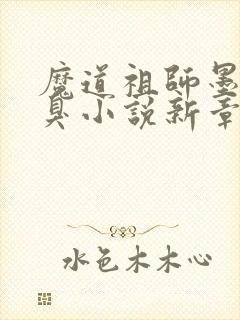 魔道祖師墨
臭小說新章
水色木木心